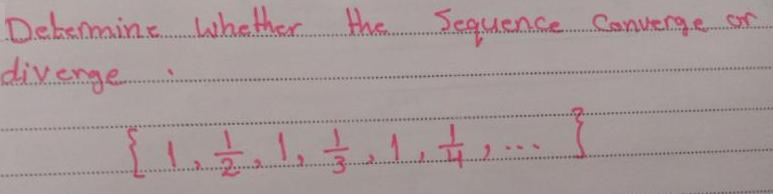 Determine whether the Sequence Converge or
diverge.
{ 1, 1/2, 1, 1/3, 1, 1/4, ... }